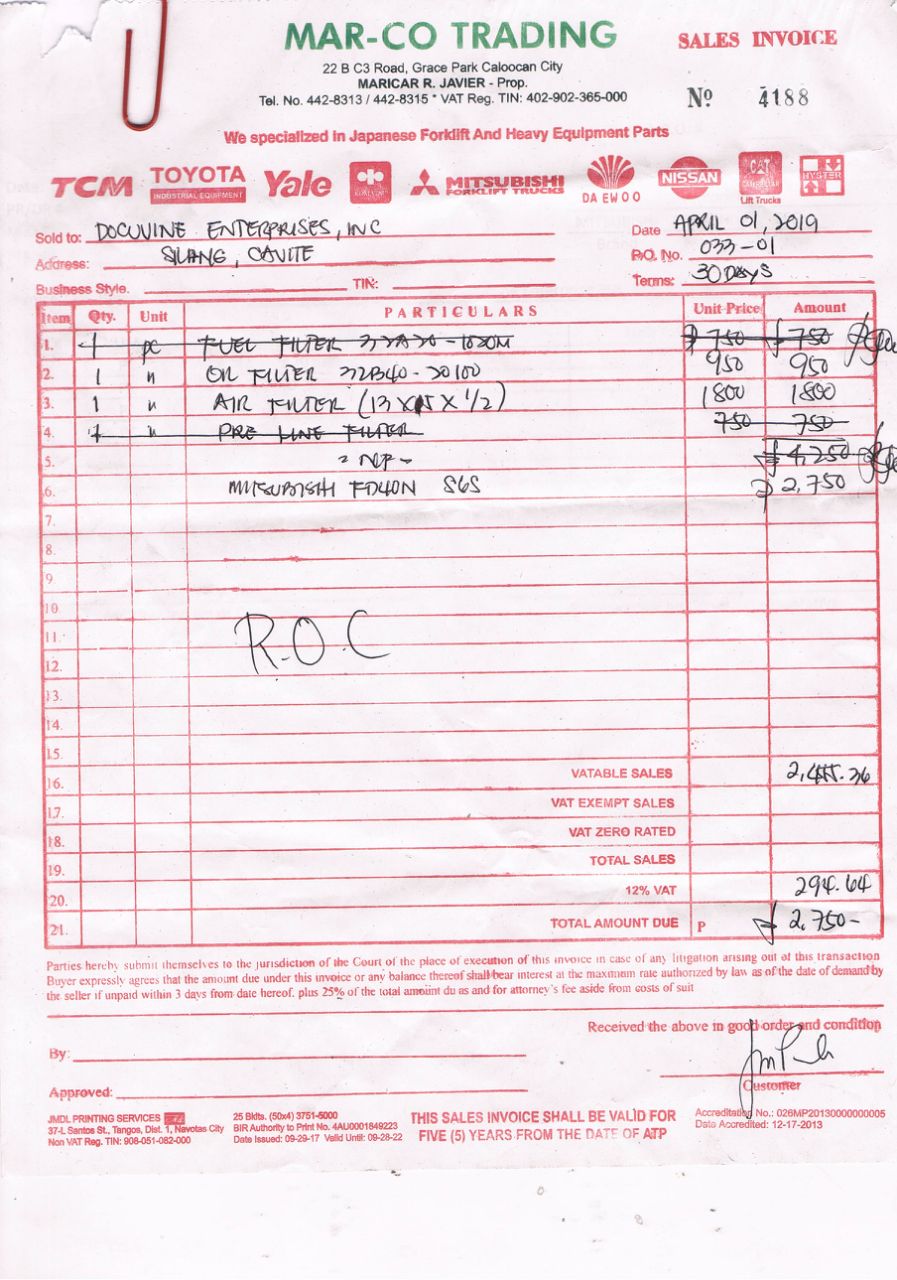 MAR-CO TRADING
SALES INVOICE
22 B C3 Road, Grace Park Caloocan City
MARICAR R. JAVIER - Prop.
Tel. No. 442-8313 / 442-8315 * VAT Reg. TIN: 402-902-365-000
Nº 4188
We specialized in Japanese Forklift And Heavy Equipment Parts
TCM TOYOTA INDUSTRIAL EQUIPMENT Yale KOMATSU MITSUBISHI FORKLIFT TRUCKS DAEWOO NISSAN CAT Lift Trucks HYSTER
Sold to: DOCUVINE ENTERPRISES, INC Date APRIL 01, 2019
Address: SILANG, CAVITE P.O. No. 033-01
Business Style. TIN: Terms: 30 DAYS
Item Qty. Unit PARTICULARS Unit Price Amount
1. 1 pc FUEL FILTER 750 750
2. 1 " OIL FILTER 32B40-20100 950 950
3. 1 " AIR FILTER (13 X 15 X 1/2) 1800 1800
4. 1 " PRE LINE FILTER 750 750
5. 4,250
6. MITSUBISHI FD40N S6S 2,750
7.
8.
9
10
11.
12.
13.
14.
15.
R.O.C
16. VATABLE SALES 2,455.36
17. VAT EXEMPT SALES
18. VAT ZERO RATED
19. TOTAL SALES
20. 12% VAT 294.64
21. TOTAL AMOUNT DUE P 2,750-
Parties hereby submit themselves to the jurisdiction of the Court of the place of execution of this invoice in case of any litigation arising out of this transaction
Buyer expressly agrees that the amount due under this invoice or any balance thereof shall bear interest at the maximum rate authorized by law as of the date of demand by
the seller if unpaid within 3 days from date hereof. plus 25% of the total amount du as and for attorney's fee aside from costs of suit
Received the above in good order and condition
By:
Customer
Approved:
JMDL PRINTING SERVICES
37-L Santos St., Tangos, Dist. 1, Navotas City
Non VAT Reg. TIN: 908-051-082-000
25 Bklts. (50x4) 3751-5000
BIR Authority to Print No. 4AU0001849223
Date Issued: 09-29-17 Valid Until: 09-28-22
THIS SALES INVOICE SHALL BE VALID FOR
FIVE (5) YEARS FROM THE DATE OF ATP
Accreditation No.: 026MP20130000000005
Date Accredited: 12-17-2013